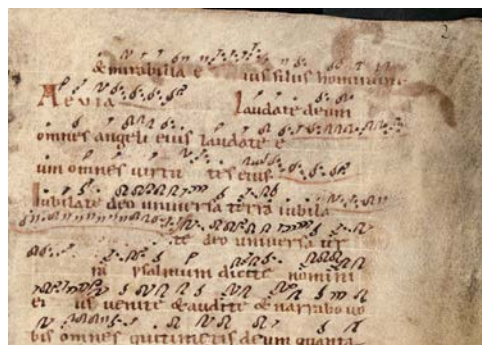 2
& mirabilia e ius filiis hominum
Aeuia Laudate deum
omnes angeli eius laudate e
um omnes uirtu tes eius
Iubilate deo uniuersa terra iubila
te deo uniuersa ter
ra psalmum dicite nomini
ei us uenite & audite & narrabo uo
bis omnes qui timetis deum quanta